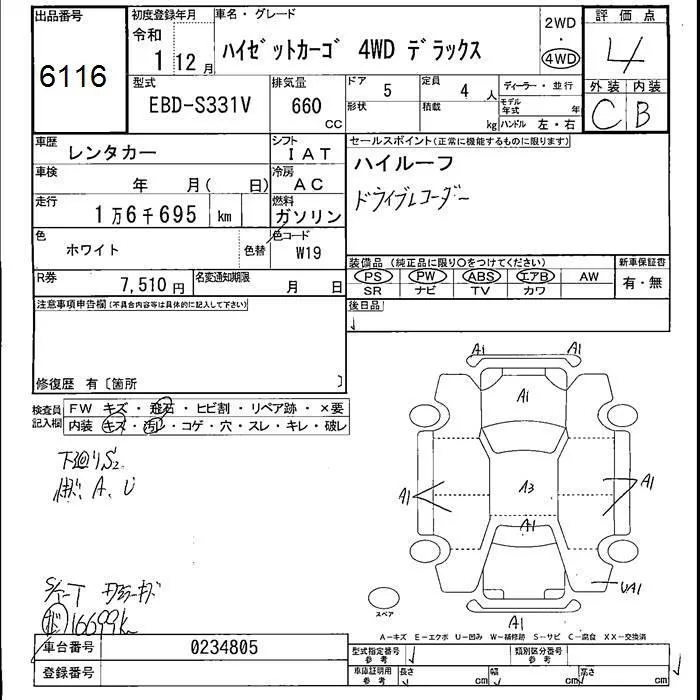 出品番号
6116
初度登録年月
令和
1 12 月
車名・グレード
ハイゼットカーゴ 4WD デラックス
2WD
・
4WD
評価点
4
外装 内装
C B
型式
EBD-S331V
排気量
660
CC
ドア
5
定員
4 人
形状
積載
kg
ディーラー・並行
モデル年式 年
ハンドル 左・右
車歴
レンタカー
シフト
IAT
車検
年 月( 日)
冷房
AC
走行
1万6千695 km
燃料
ガソリン
色
ホワイト
色替
色コード
W19
R券
7,510 円
名変通知期限
月 日
セールスポイント(正常に機能するものに限ります)
ハイルーフ
ドライブレコーダー
装備品 (純正品に限り○をつけてください)
PS PW ABS エアB AW
SR ナビ TV カワ
新車保証書
有・無
後日品
注意事項申告欄(不具合内容等は具体的に記入して下さい)
修復歴 有〔箇所 〕
検査員記入欄
FW キズ・飛石・ヒビ割・リペア跡・×要
内装 キズ・汚レ・コゲ・穴・スレ・キレ・破レ
下廻りS2
A、U
16699k
A1 A1
A1
A3
A1 A1
A1
UA1
A1
スペア
A−キズ E−エクボ U−凹み W−補修跡 S−サビ C−腐食 XX−交換済
車台番号
0234805
登録番号
型式指定番号
参考
類別区分番号
参考
車庫証明用
参考
長さ cm
幅 cm
高さ cm